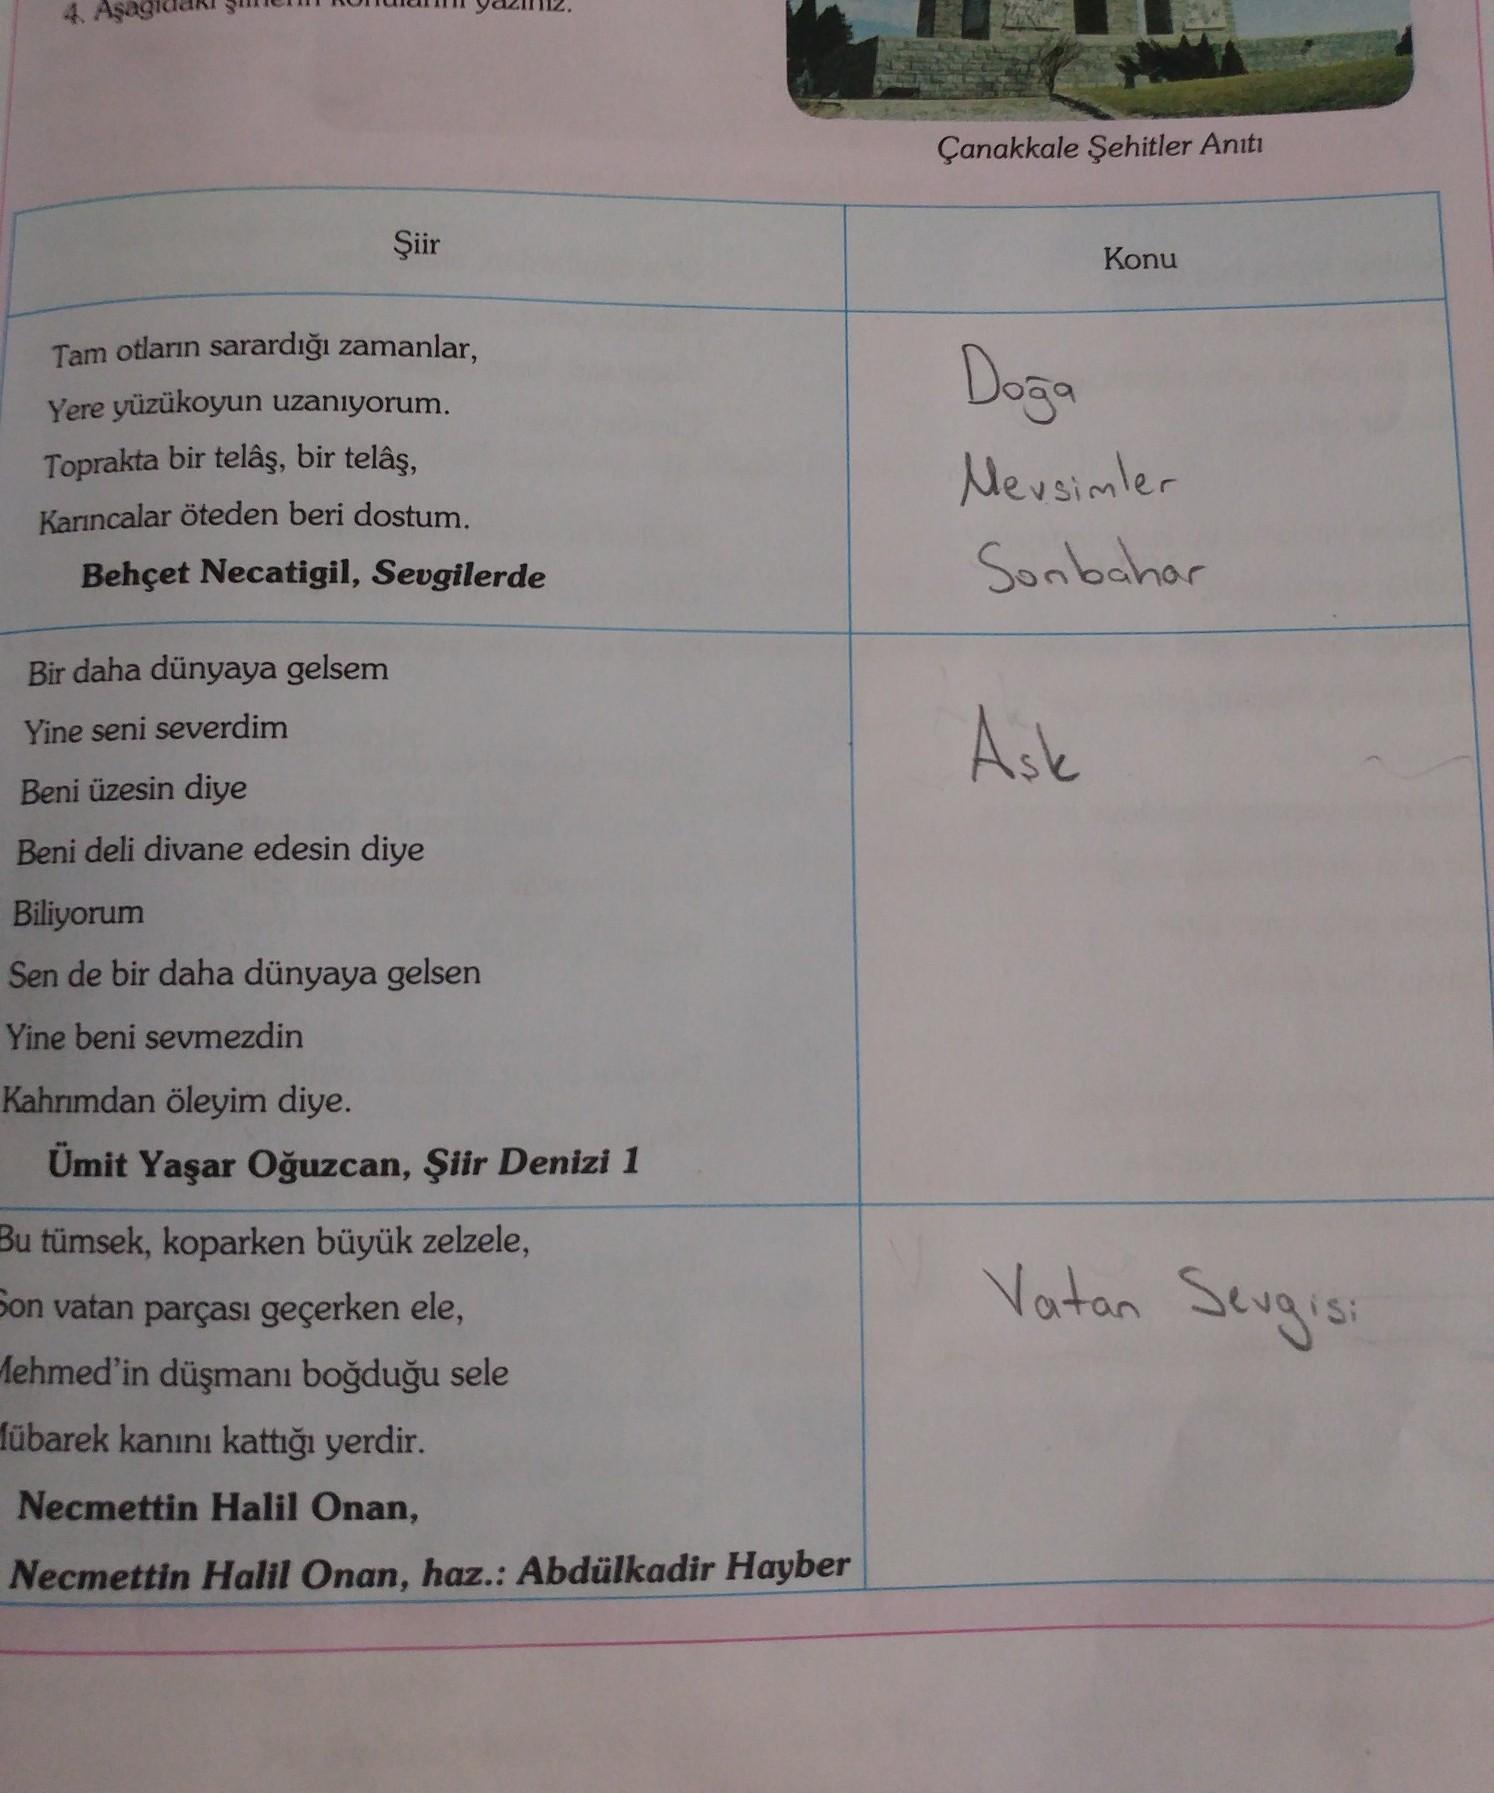 4. Aşağıdaki şiirlerin konularını yazınız.
Çanakkale Şehitler Anıtı
Şiir
Konu
Tam otların sarardığı zamanlar,
Yere yüzükoyun uzanıyorum.
Toprakta bir telâş, bir telâş,
Karıncalar öteden beri dostum.
Behçet Necatigil, Sevgilerde
Doğa
Mevsimler
Sonbahar
Bir daha dünyaya gelsem
Yine seni severdim
Beni üzesin diye
Beni deli divane edesin diye
Biliyorum
Sen de bir daha dünyaya gelsen
Yine beni sevmezdin
Kahrımdan öleyim diye.
Ümit Yaşar Oğuzcan, Şiir Denizi 1
Ask
Bu tümsek, koparken büyük zelzele,
Son vatan parçası geçerken ele,
Mehmed'in düşmanı boğduğu sele
Mübarek kanını kattığı yerdir.
Necmettin Halil Onan,
Necmettin Halil Onan, haz.: Abdülkadir Hayber
Vatan Sevgisi